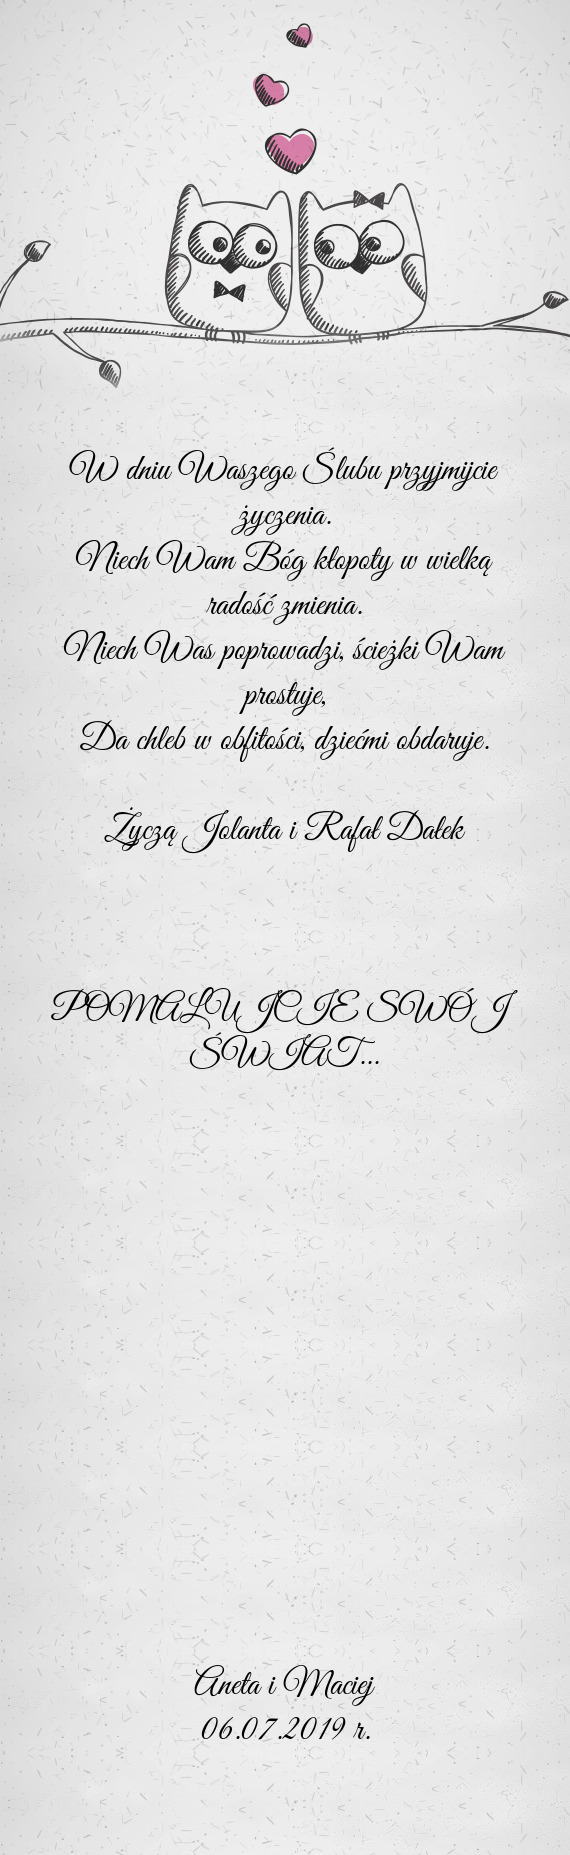 W dniu Waszego Ślubu przyjmijcie
życzenia.
Niech Wam Bóg kłopoty w wielką
radość zmienia.
Niech Was poprowadzi, ścieżki Wam
prostuje,
Da chleb w obfitości, dziećmi obdaruje.
Życzą Jolanta i Rafał Dałek
POMALUJCIE SWÓJ
ŚWIAT...
Aneta i Maciej
06.07.2019 r.